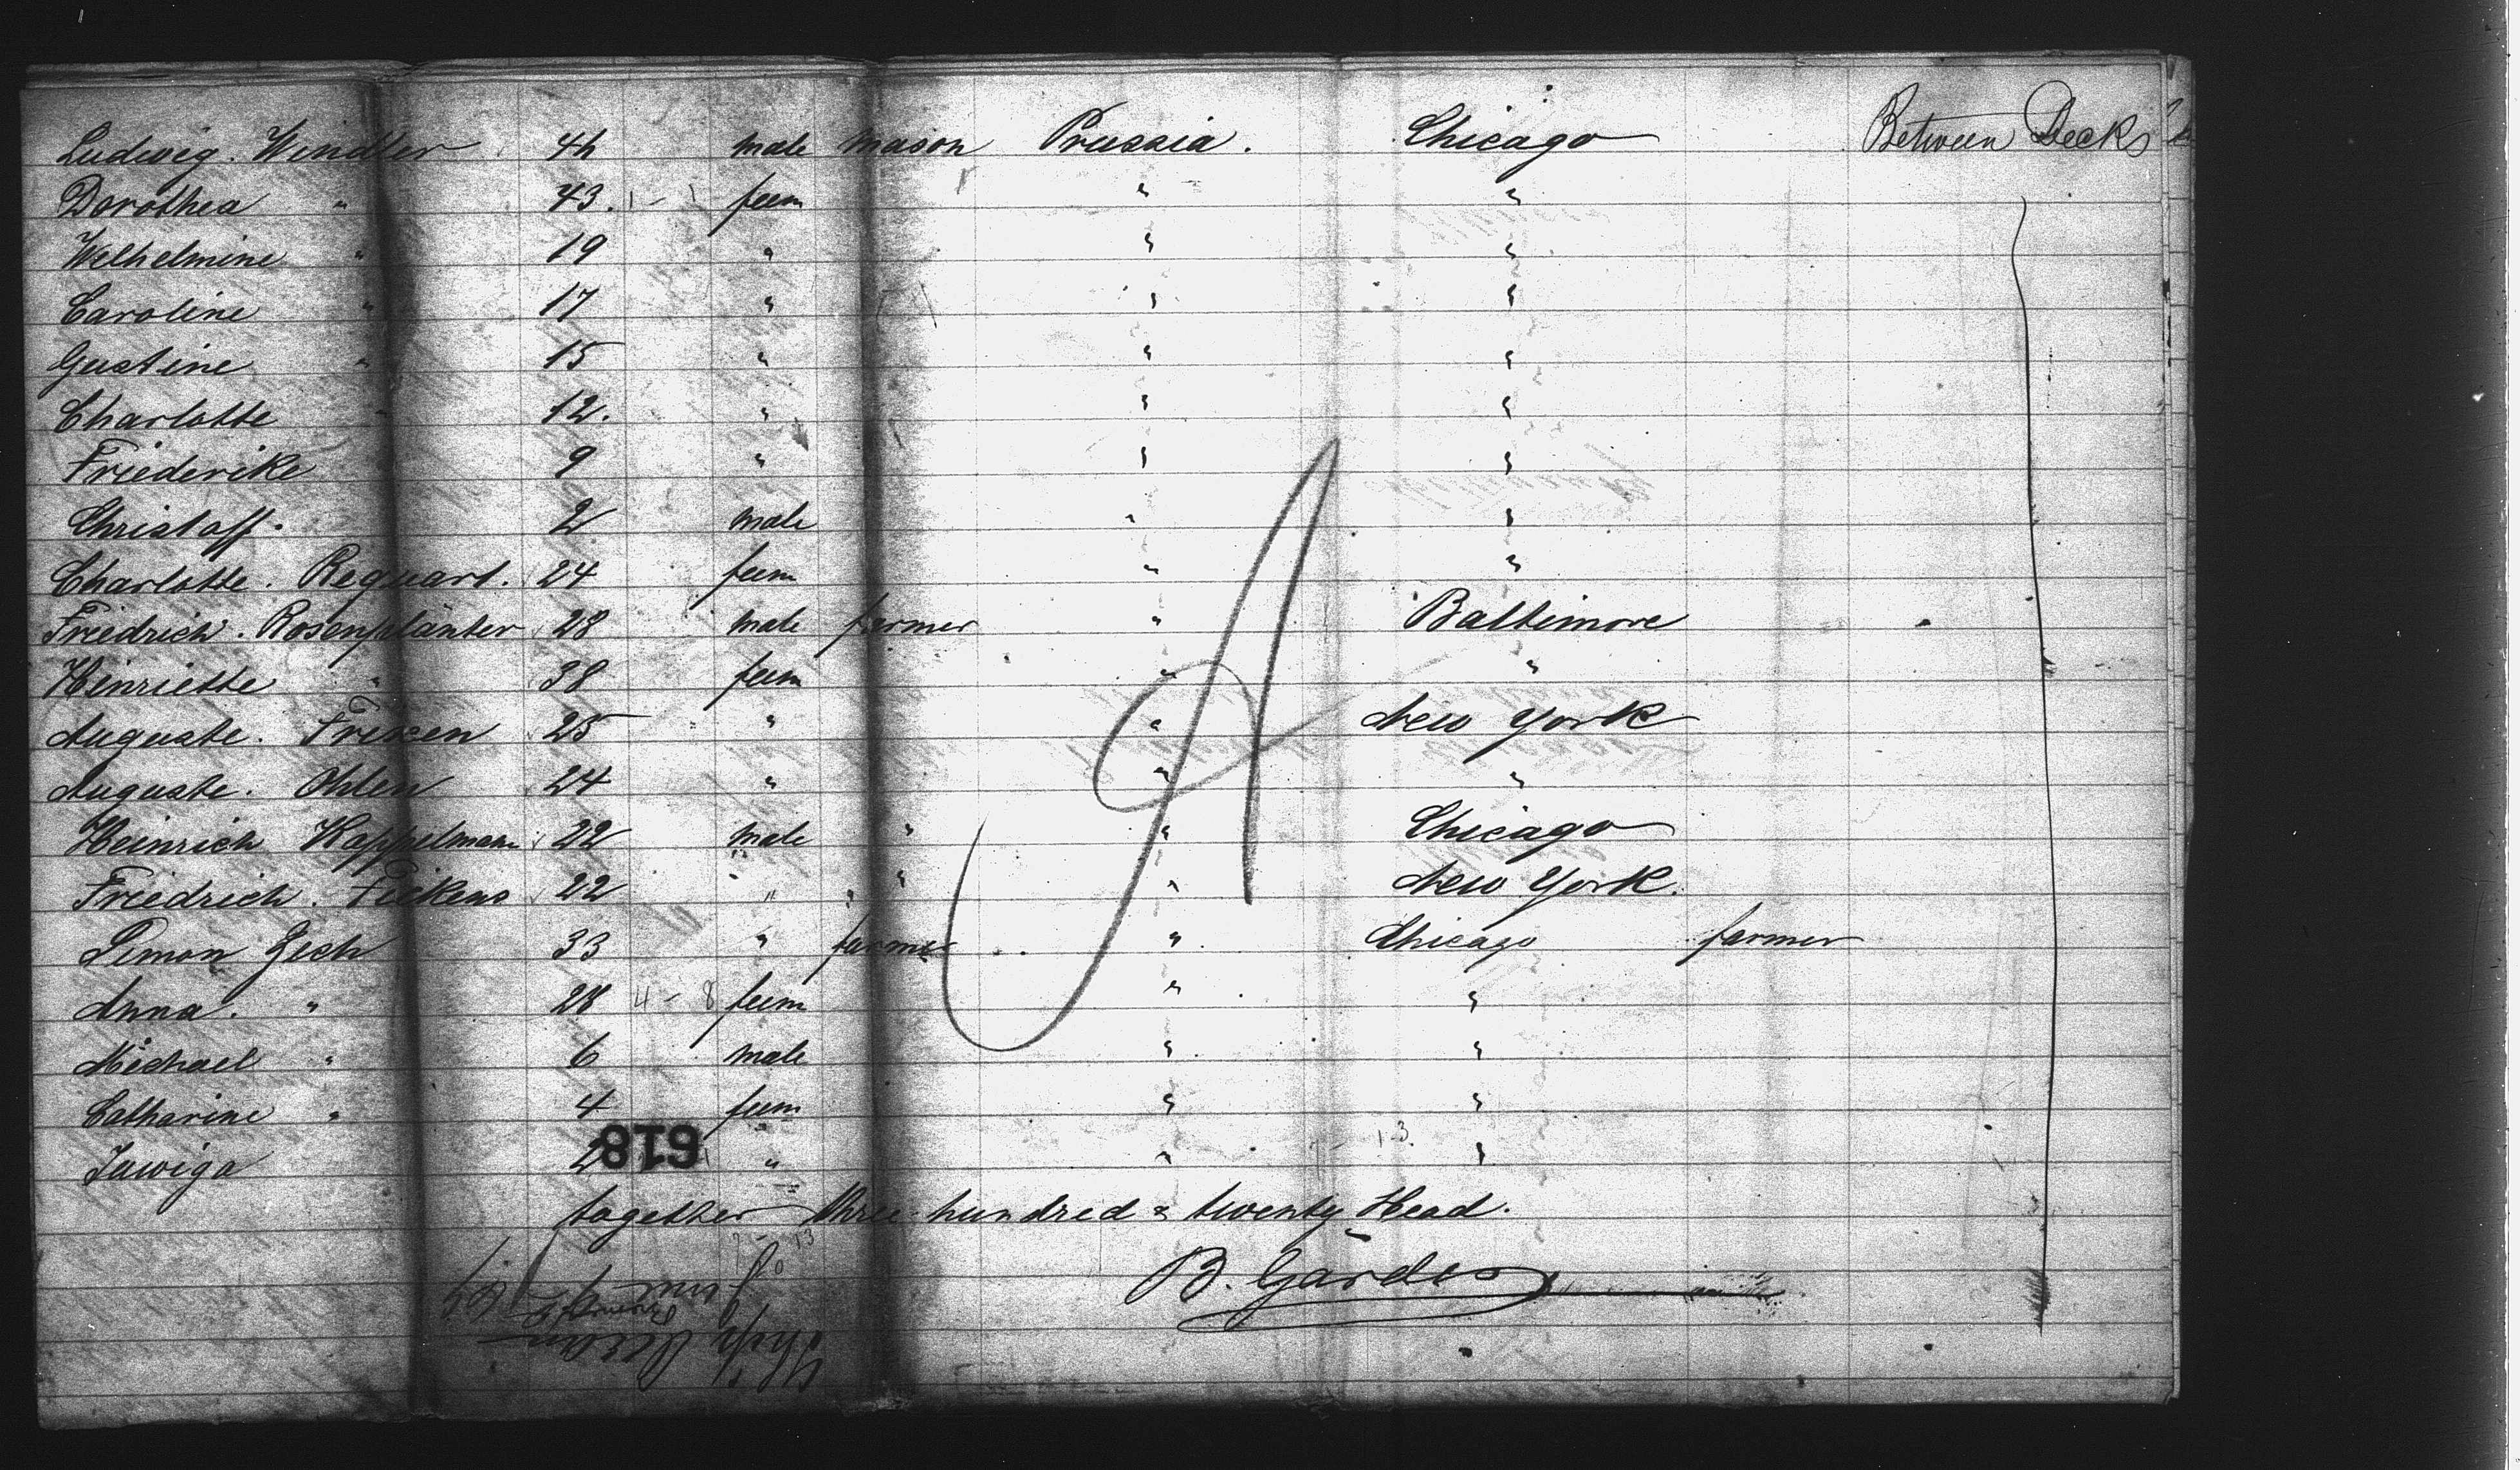 Ludwig. Windler 44 male mason Prussia. Chicago Between Decks
Dorothea " 43. feem " "
Welhelmine " 19 " " "
Caroline " 17 " " "
Gustine " 15 " " "
Charlotte " 12. " " "
Friederike 9 " " "
Christoff. 2 male " "
Charlotte. Requart. 24 feem " "
Friedrich. Rosenplänter 28 male farmer " Baltimore
Henriette " 38 feem " "
Auguste. Fresen 25 " " New York
Auguste. Ohlen 24 " " "
Heinrich Kappelmann 22 male " " Chicago
Friedrich. Fickens 22 " " " New York.
Simon Zech 33 " farmer " Chicago farmer
Anna. " 28 4 - 8 feem " "
Michael " 6 male " "
Catharine " 4 feem " "
Juwiga 2 " " "
618
together three hundred & twenty Head.
B. Gärdes
A